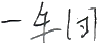 一年间